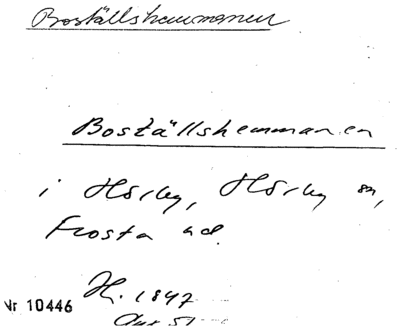 Boställshemmanen
Boställshemmanen
i Hörby, Hörby sn,
Frosta hd.
H. 1847
Nr 10446